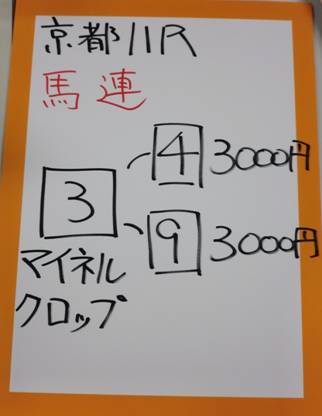 京都11R
馬連
4 3000円
3
9 3000円
マイネル
クロップ